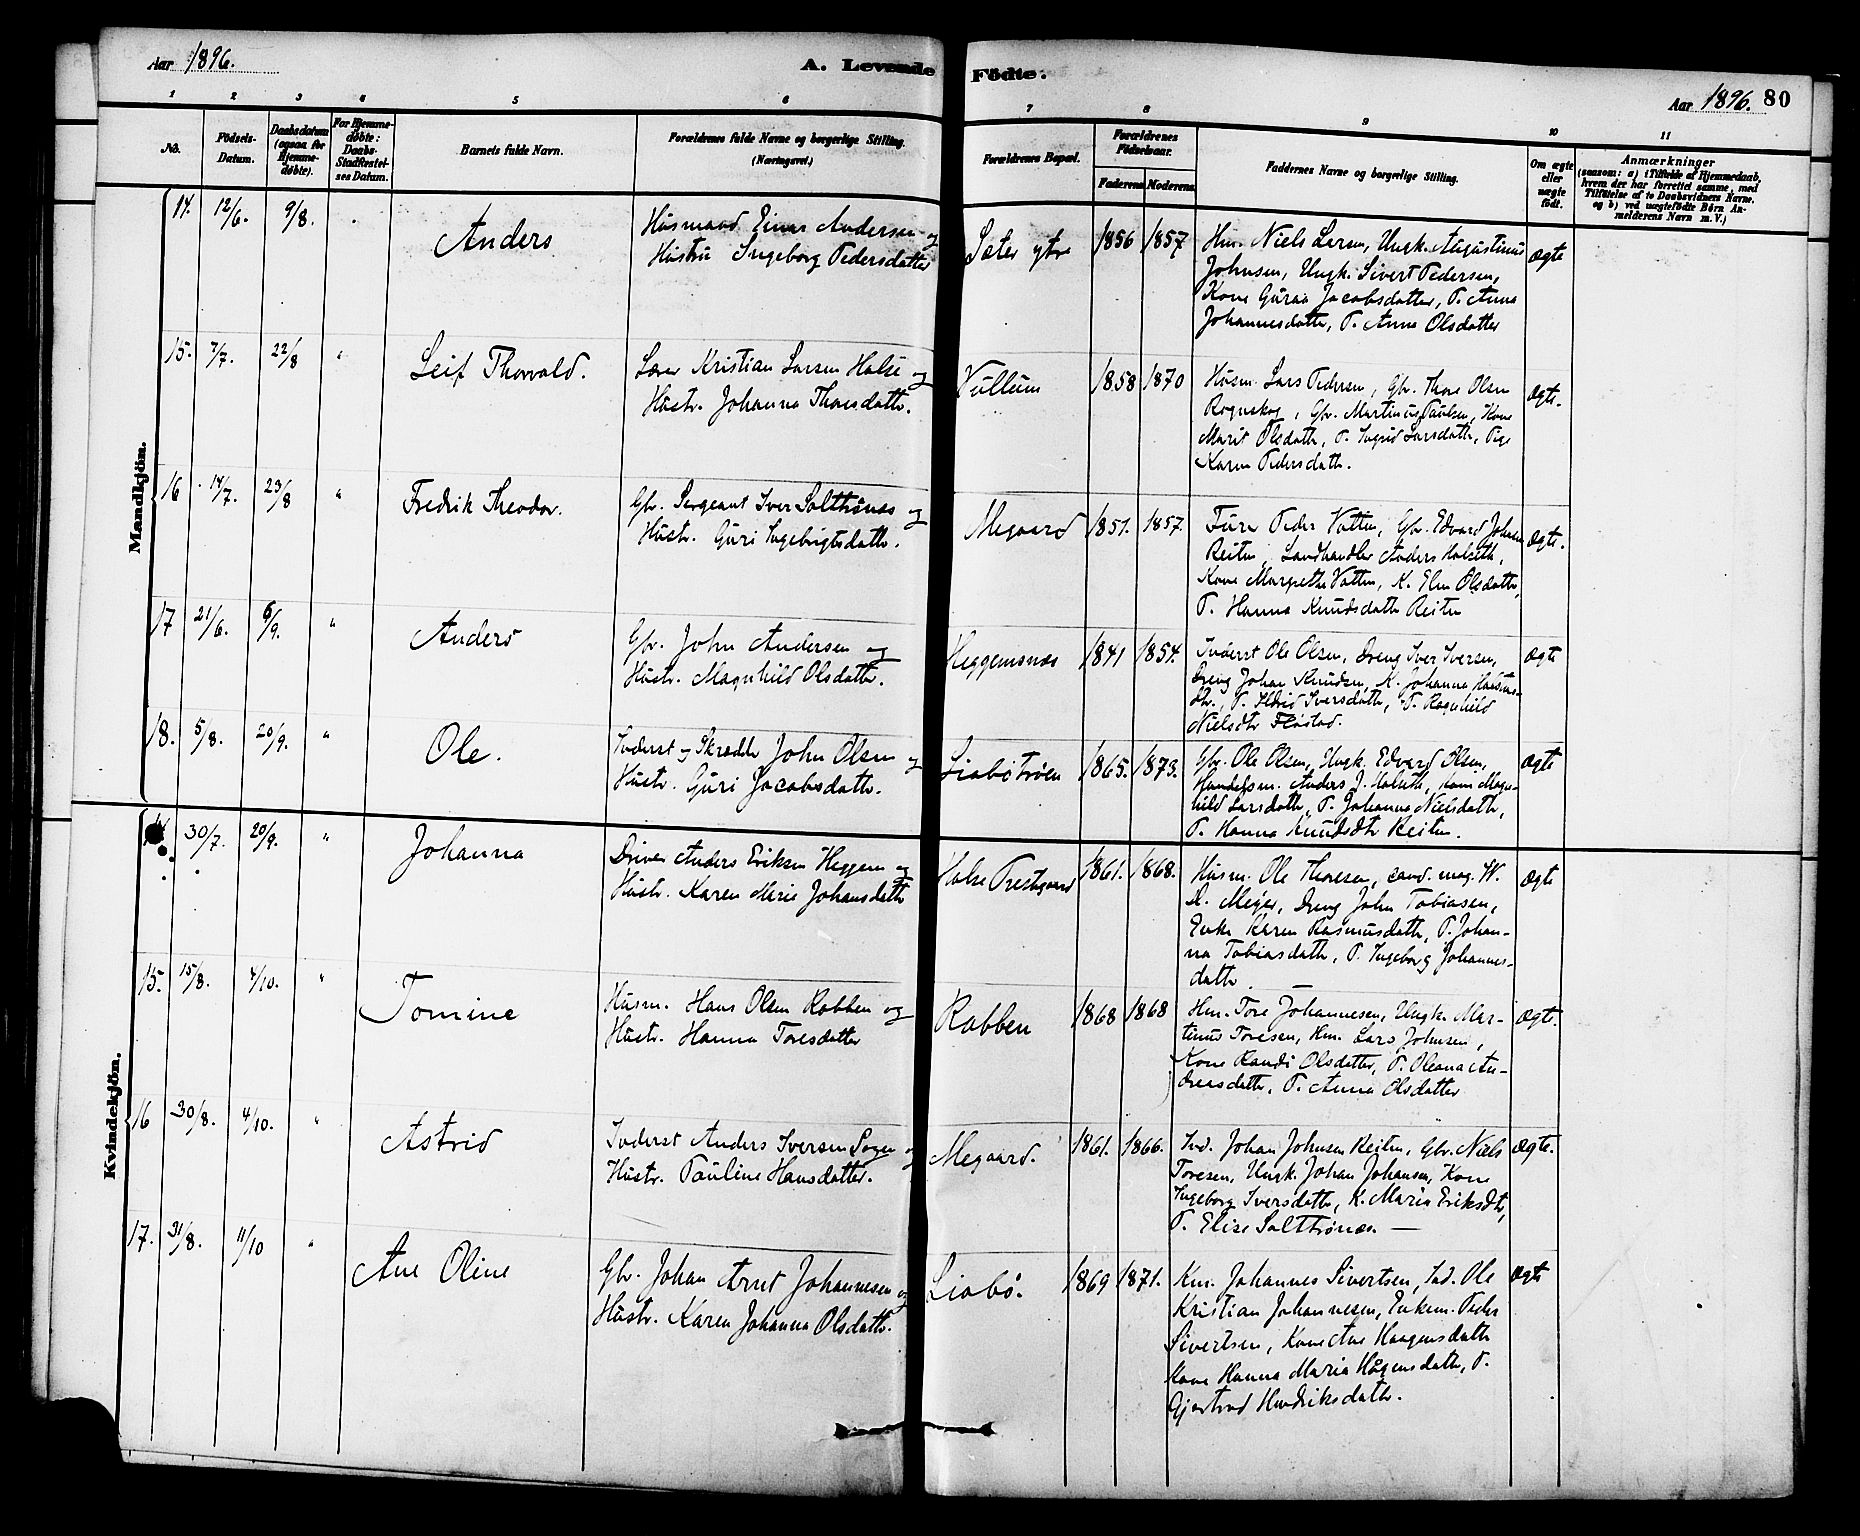 Aar 1896.
A. Levende Födte.
Aar 1896. 80
1 2 3 4 5 6 7 8 9 10 11
No.
Födsels-
Datum.
Daabsdatum
(ogsaa for
Hjemme-
døbte).
For Hjemme-
døbte:
Daabs-
Stadfæstel-
ses Datum.
Barnets fulde Navn.
Forældrenes fulde Navne og borgerlige Stilling.
(Næringsvei.)
Forældrenes Bopæl.
Forældrenes
Fødselsaar.
Faderens Moderens
Faddernes Navne og borgerlige Stilling.
Om ægte
eller
uægte
født.
Anmærkninger
(saasom: a) i Tilfælde af Hjemmedaab,
hvem der har forrettet samme, med
Tilføielse af to Daabsvidners Navne,
og b) ved uægtefødte Børn An-
melderens Navn m. V.)
Mandkjön.
14. 12/6. 9/8.
Anders
Husmand Einar Andersen og
Hustru Ingeborg Pedersdatter
Sæter ytre 1856 1857
Hm. Niels Larsen, Ungk. Augustinus
Johnsen, Ungk. Sivert Pedersen,
Kone Guraa Jacobsdatter, P. Anna
Johannesdatter, P. Anne Olsdatter
Ægte
15. 7/7. 22/8 "
Leif Thorvald.
Lærer Kristian Larsen Halse og
Hustr. Johanna Thoresdattr.
Vullum 1858 1870
Husm. Lars Pedersen, Gbr. Thore Olsen
Rognskog, Gbr. Martinus Paulsen, Kone
Marit Olsdattr, P. Ingrid Larsdattr, Pige
Karen Pedersdattr.
Ægte.
16 14/7. 23/8 "
Fredrik Theodor.
Gbr. Sergeant Iver Saltrönæs og
Hustr. Guri Ingebrigtsdattr.
Megaard 1851. 1857.
Furer Peder Vatten, Gbr. Edvard Johnsen
Reiten, Landhandler Anders Halseth,
Kone Margrethe Vatten, K. Elen Olsdattr,
P. Hanna Knudsdattr Reiten
Ægte.
17 21/6. 6/9. "
Anders
Gbr. John Andersen og
Hustr. Magnhild Olsdattr.
Heggemsnæs 1841 1854.
Inderst Ole Olsen, Dreng Iver Iversen,
Dreng Johan Knudsen, K. Johanna Hansens-
dtr., P. Eldrid Iversdattr, P. Ragnhild
Nielsdtr Flöstad.
Ægte
18. 5/8. 20/9. "
Ole.
Inderst og Skrædder John Olsen og
Hustr. Guri Jacobsdattr.
Liabötröen 1865. 1873.
Gbr. Ole Olsen, Ungk. Edvard Olsen,
Handelsm. Anders J. Halseth, Kone Magn-
hild Larsdattr, P. Johanna Nielsdattr,
P. Hanna Knudsdtr Reiten.
Ægte
Kvindekjön.
30/7. 20/9. "
Johanna
Driver Anders Eriksen Heggem og
Hustr. Karen Marie Johansdattr
Halse Prestgaard 1861. 1868.
Husm. Ole Thoresen, cand. mag. W.
D. Meÿer, Dreng John Tobiasen,
Enke Karen Rasmusdattr, P. Johan-
na Tobiasdattr, P. Ingeborg Johannes-
dattr.
Ægte
15. 15/8. 4/10. "
Tomine
Husm. Hans Olsen Rabben og
Hustr. Hanna Toresdatter
Rabben 1868 1868
Hm. Tore Johannesen, Ungk. Mar-
tinus Toresen, Hm. Lars Johnsen,
Kone Randi Olsdatter, P. Oleana An-
dreasdatter, P. Anna Olsdatter
Ægte.
16 30/8. 4/10. "
Astrid
Inderst Anders Iversen Sagen og
Hustr. Pauline Hansdatter.
Megaard. 1861. 1866.
Ind. Johan Johnsen Reiten, Gbr. Niels
Toresen, Ungk. Johan Johansen, Kone
Ingeborg Iversdattr, K. Maria Eriksdtr,
P. Elise Saltrönæs —
Ægte.
17. 31/8. 11/10 "
Ane Oline
Gbr. Johan Arnt Johannesen og
Hustr. Karen Johanna Olsdattr.
Liabö. 1869 1871.
Km. Johannes Sivertsen, Ind. Ole
Kristian Johannesen, Enkem. Peder
Sivertsen, Kone Ane Haagensdattr
Kone Hanna Maria Hågensdattr, P.
Gjertrud Hendriksdattr.
Ægte